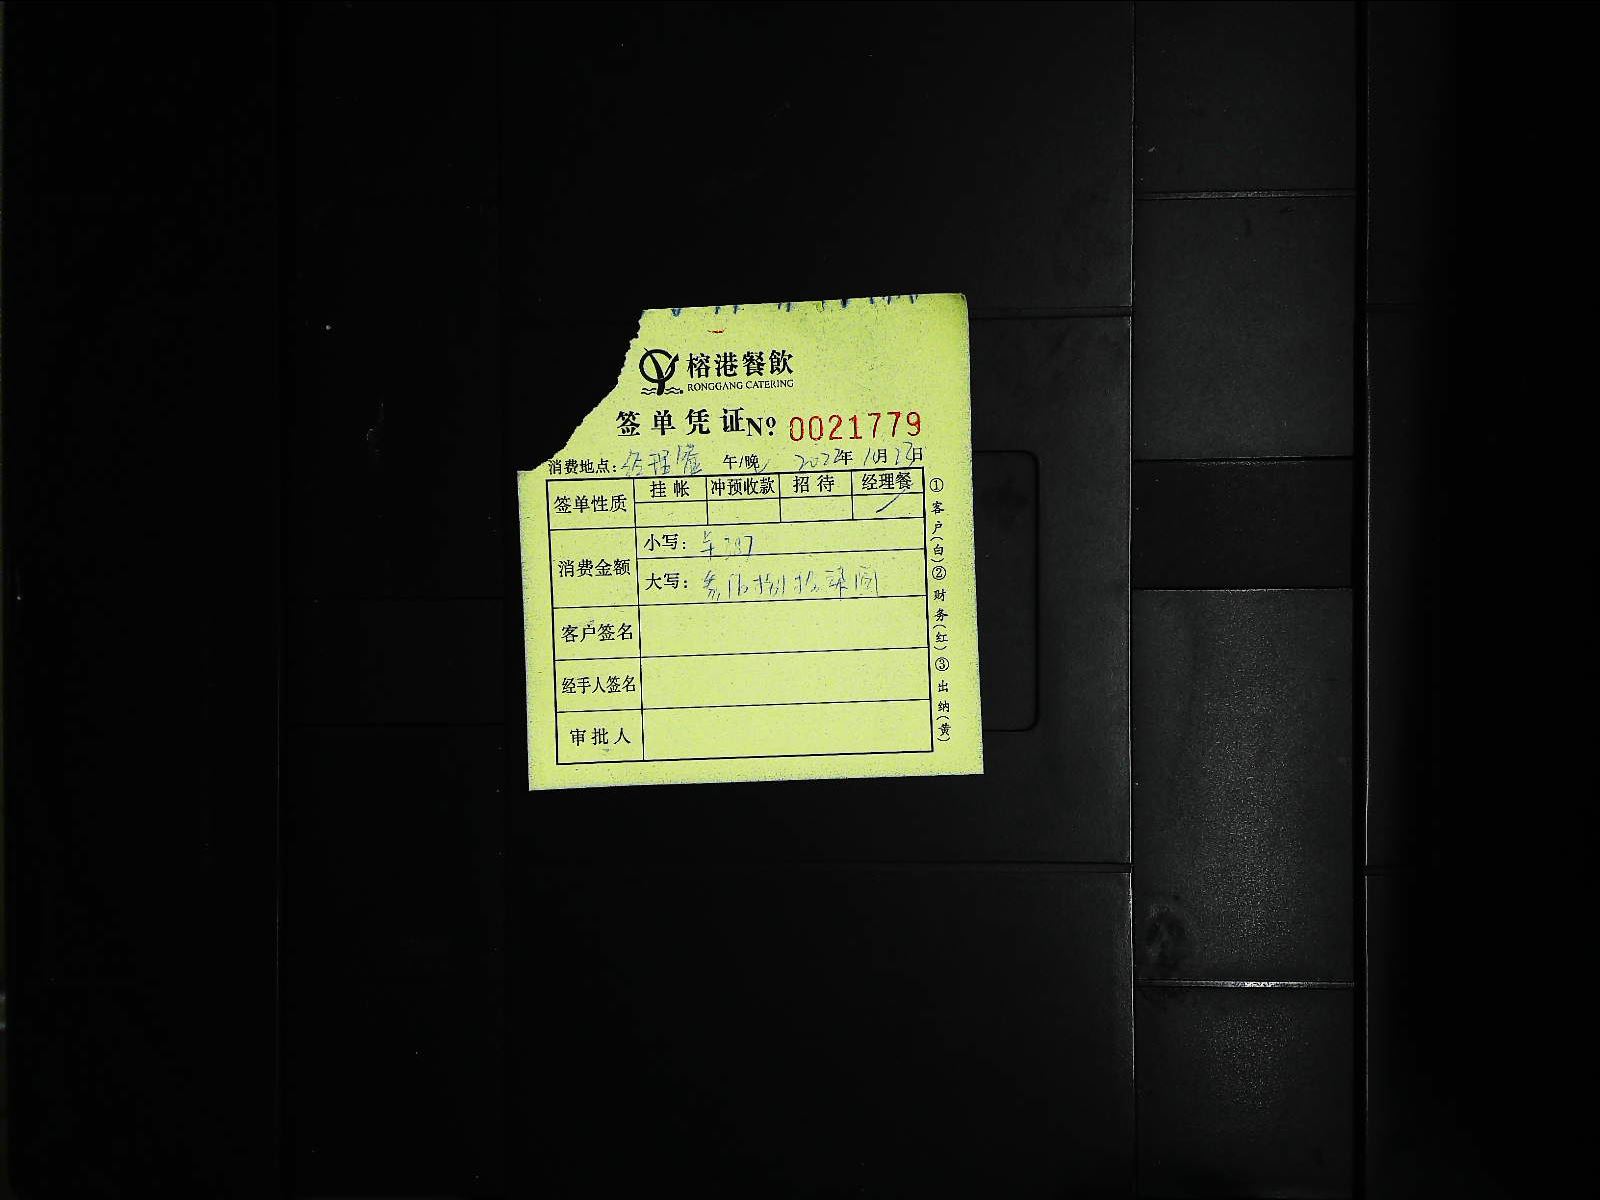 榕港餐飲
RONGGANG CATERING
签单凭证 Nº 0021779
消费地点： 午/晚 2022年10月 日
签单性质 挂帐 冲预收款 招待 经理餐
消费金额 小写：
大写：
客户签名
经手人签名
审批人
①客户(白)②财务(红)③出纳(黄)